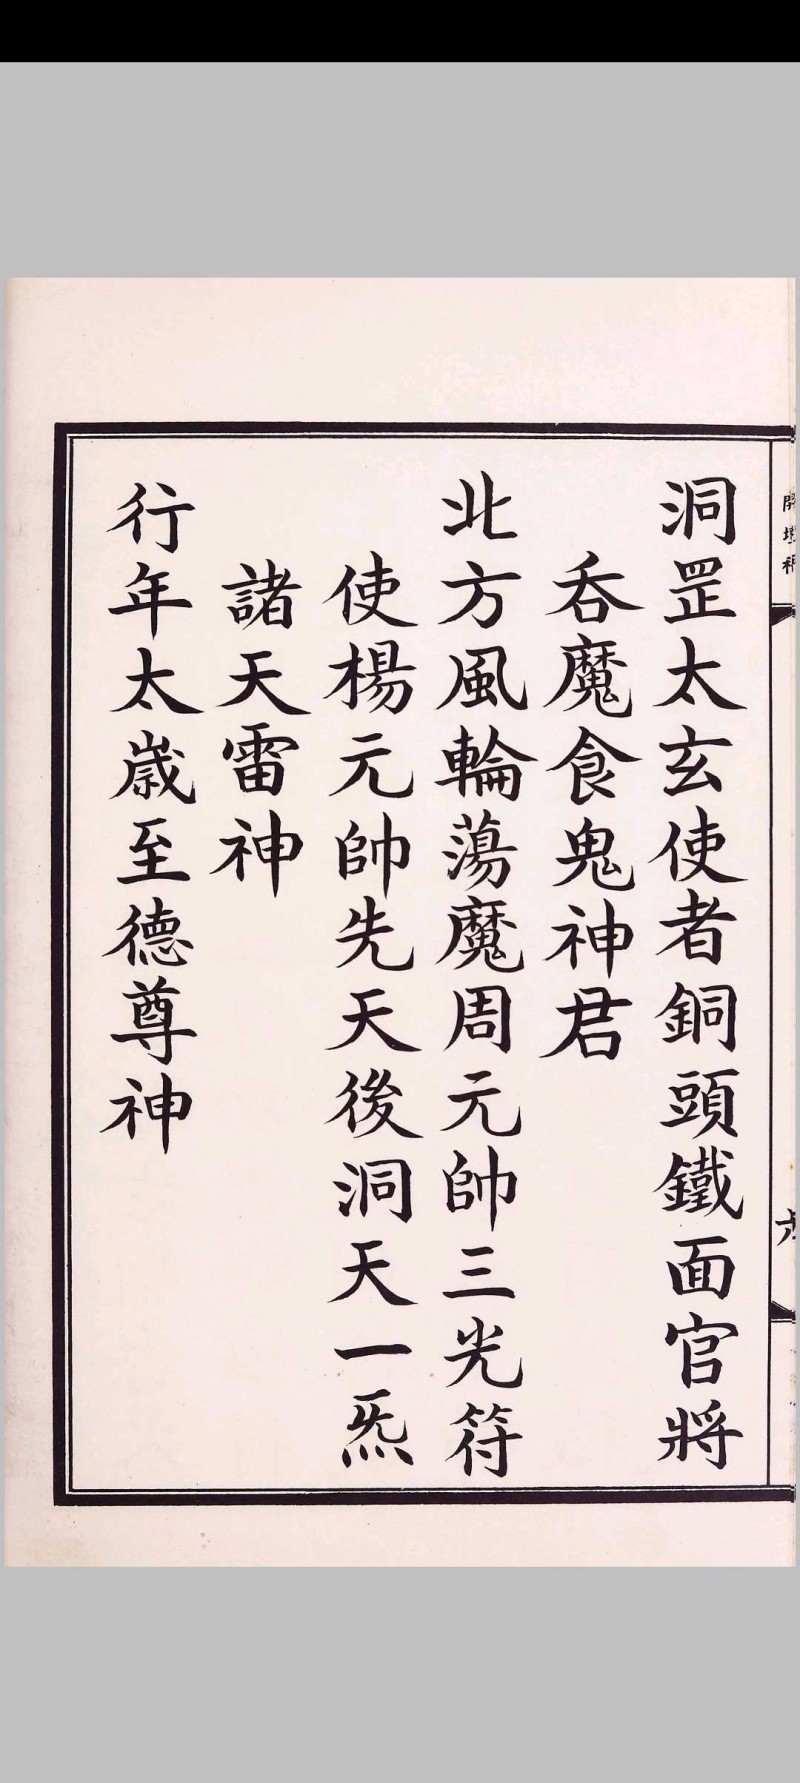 洞罡太玄使者銅頭鐵面官將
吞魔食鬼神君
北方風輪蕩魔周元帥三光符
使楊元帥先天後洞天一炁
諸天雷神
行年太歲至德尊神